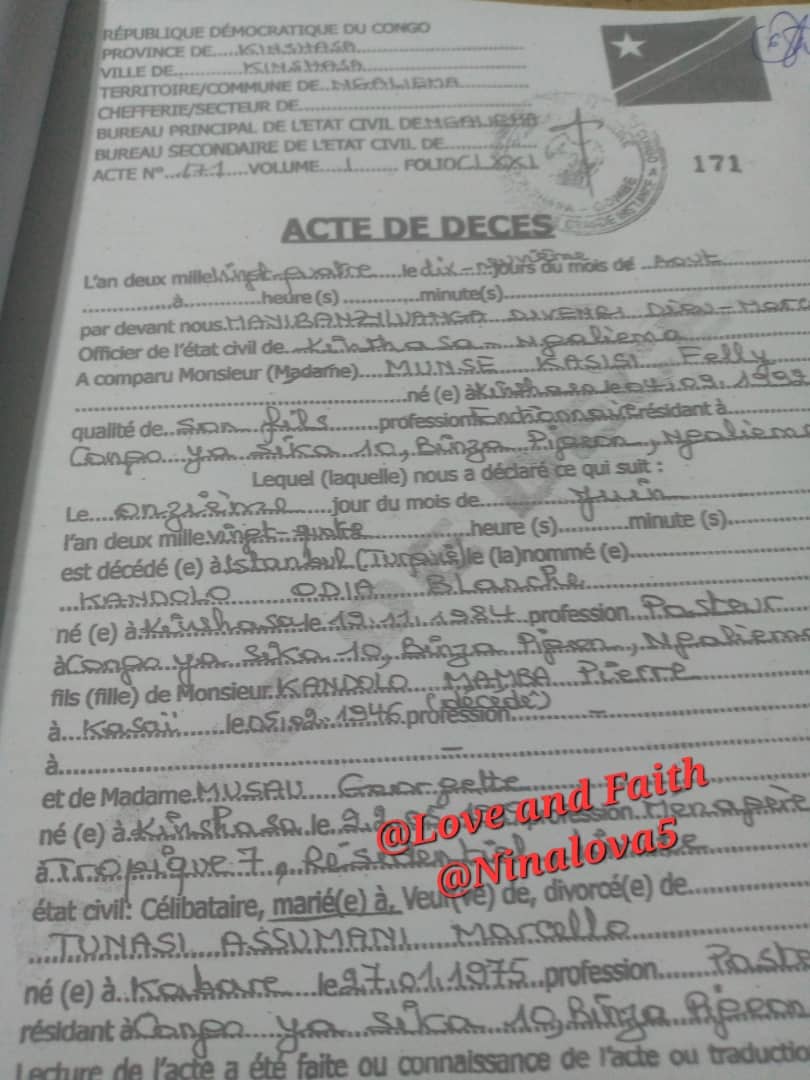 RÉPUBLIQUE DÉMOCRATIQUE DU CONGO
PROVINCE DE....KINSHASA
VILLE DE............KINSHASA
TERRITOIRE/COMMUNE DE..NGALIEMA
CHEFFERIE/SECTEUR DE
BUREAU PRINCIPAL DE L'ETAT CIVIL DE NGALIEMA
BUREAU SECONDAIRE DE L'ETAT CIVIL DE
ACTE N°..171....VOLUME....I......FOLIO CLXXI
171
ACTE DE DECES
L'an deux mille vingt-quatre le dix-neuvième jours du mois de Aout
à............heure(s)............minute(s)
par devant nous DIVENGI DIEU-MERC
Officier de l'état civil de Kinshasa-Ngaliema
A comparu Monsieur (Madame)....MUNSE KASISI Felly
né (e) à Kinshasa le 04.09.199
qualité de...Son fils......profession fonctionnaire résidant à
Congo ya sika 10, Binza Pigeon, Ngaliema
Lequel (laquelle) nous a déclaré ce qui suit :
Le....onzième......jour du mois de........juin
l'an deux mille vingt-quatre............heure (s)............minute (s)
est décédé (e) à Istanbul (Turquie) le (la) nommé (e)
KANDOLO ODIA Blanche
né (e) à Kinshasa le 19.11.1984 profession Pasteur
à Congo ya sika 10, Binza Pigeon, Ngaliema
fils (fille) de Monsieur KANDOLO MAMBA Pierre
(décédé)
à...Kasaï......le 05.09.1946 profession......–
à............–
et de Madame MUSAU Georgette
né (e) à Kinshasa le profession Menagère
à Tropique 7, Résidentiel,
@Love and Faith
@Ninalova5
état civil: Célibataire, marié(e) à, Veuf(ve) de, divorcé(e) de
TUNASI ASSUMANI Marcello
né (e) à..Kabare....le 27.01.1975 profession Paste
résidant à Congo ya sika 10, Binza Pigeon
Lecture de l'acte a été faite ou connaissance de l'acte ou traduction